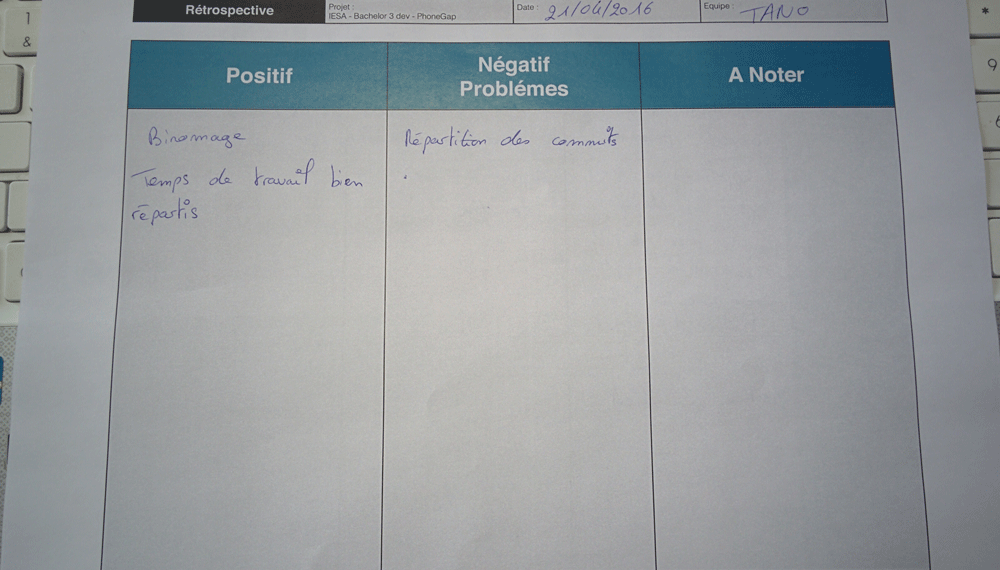 Rétrospective
Projet :
IESA - Bachelor 3 dev - PhoneGap
Date : 21/04/2016
Equipe : TANO
Positif
Négatif
Problémes
A Noter
Binomage
Temps de travail bien
répartis
Répartition des commits
1
&
*
9